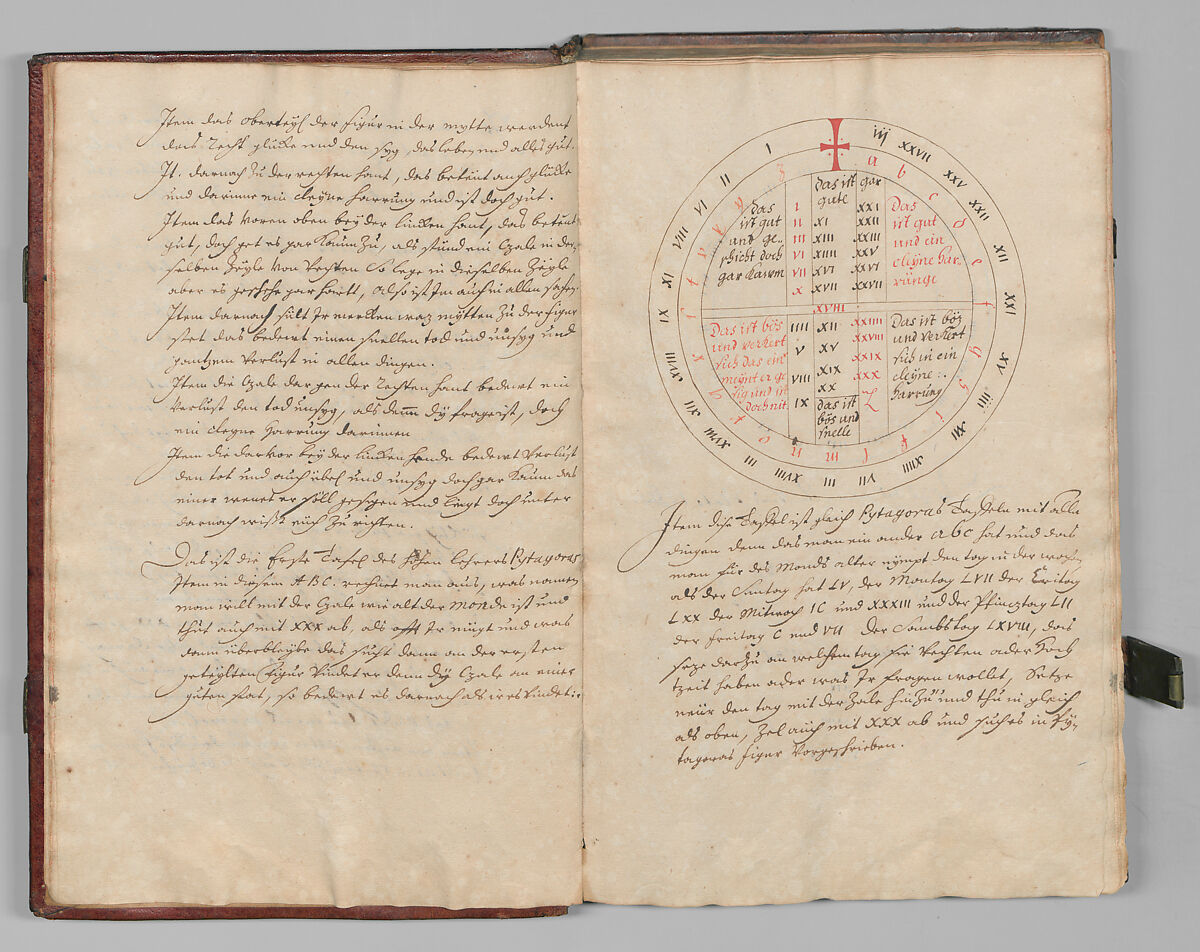 Item das oberteyl der figur in der mytte werdent
das recht glücke und den syg, das leben und alles gut.
It. darnach zu der rechten hant, das betéut auch glücke
und darinne ein cleyne harrung und ist doch gut.
Item das voren oben bey der lincken hant, das betéut
gut, doch get es gar kaum zu, als stund ein Czale in der
selben Zeyle von rechten so lege in dieselben Zeyle
aber es geschehe gar hertt, also ist Im auch in allen sachen
Item darnach sült Ir mercken waz mytten zu der figur
stet das bedewt einen snellen tod und unsyg und
gantzem verlust in allen dingen.
Item die Czale dar gen der rechten hant bedewt ein
verlust den tod unsyg, als denn dy frage ist, doch
ein cleyne harrung darinnen
Item die darvor bey der lincken hende bedewt verlust
den tot und auch übel und unsyg doch gar kaum das
einer wenet er söll gesygen und ligt doch unter
darnach wißt euch zu richten.
Das ist die Erste Tafel des hohen lehrers Pytagoras
Item in diesem ABC. rechnet man auß, was namen
man wilt mit der Czale wie alt der monde ist und
thut auch mit xxx ab, als offt Ir mügt und was
dann überbleybt das sucht dann an der ersten
geteylten figur vindet er denn dy Czale an einer
guten stat, so bedewt es darnach als irs vindet.
I
iij
XXVII
XXV
XXII
XII
XXI
XV
IIII
XVI
XIIII
VII
III
XVIII
II
XVIII
XII
XVIII
IX
XI
VIII
VI
II
a
b
c
d
e
f
g
h
i
k
l
m
n
o
z
das ist gar
gute
das
ist gut
und ge..
schicht doch
gar kawm
I
II
III
VI
VII
X
XI
XIII
XIIII
XVI
XVII
XXI
XXII
XXIII
XXV
XXVI
XXVII
Das
ist gut
und ein
cleyne har-
runge
XVIII
Das ist bös
und verkert
sich das ein
meynt er ge
sig und ist
doch nit
IIII
V
VIII
IX
XII
XV
XIX
XX
das ist
bös und
snelle
XXIIII
XXVIII
XXIX
XXX
Das ist böz
und verkert
sich in ein
cleyne :.
harrung
Item dise Taffel ist gleich Pytagoras Taffeln mit alle
dingen denn das man ein ander abc hat und das
man für des Monds alter nympt den tag in der wochen
als der Suntag hat LV, der Montag LVII der Eritag
LXX der Mitwoch IC und XXXIII und der Pfinztag LII
der Freitag C und VII der Sambstag LXVIII, das
setze darzu an welchem tag Ir rechten oder hoch
tzeit haben oder was Ir fragen wollet, Setze
neür den tag mit der Zale hinzu und thu in gleich
als oben, zel auch mit xxx ab und suchs in Py-
tagoras figur vorgeschrieben.